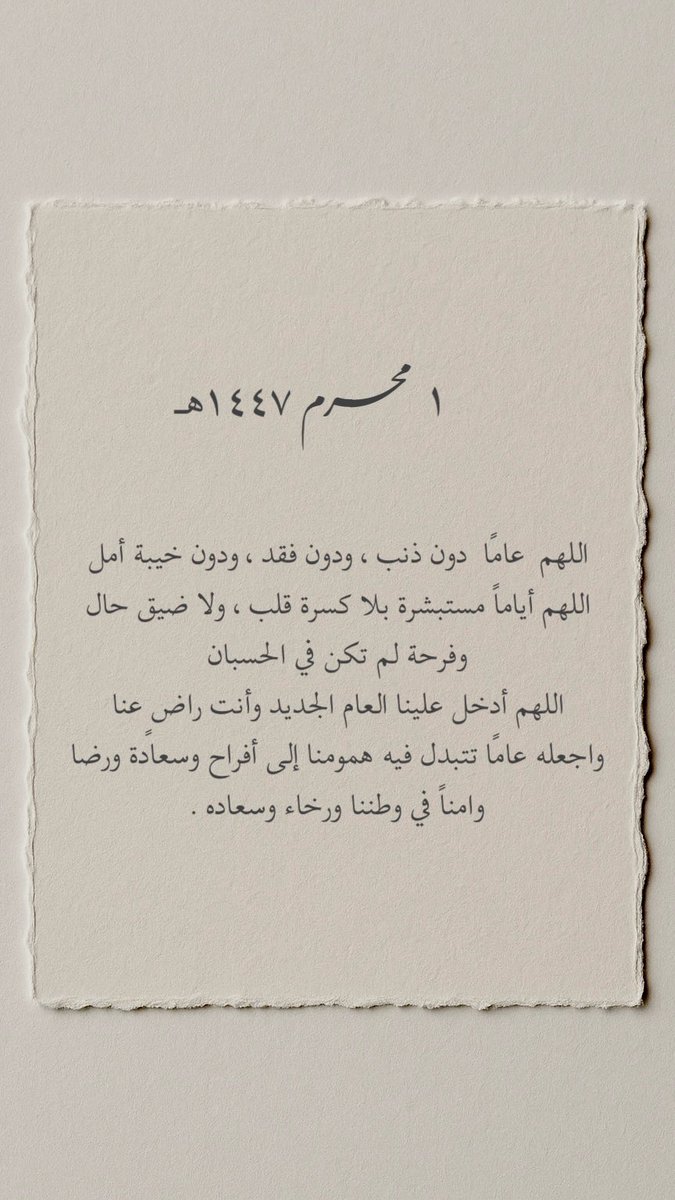 ١ محرم ١٤٤٧هـ
اللهم عامًا دون ذنب ، ودون فقد ، ودون خيبة أمل
اللهم أياماً مستبشرة بلا كسرة قلب ، ولا ضيق حال
وفرحة لم تكن في الحسبان
اللهم أدخل علينا العام الجديد وأنت راض عنا
واجعله عامًا تتبدل فيه همومنا إلى أفراح وسعادًة ورضا
وامناً في وطننا ورخاء وسعاده .